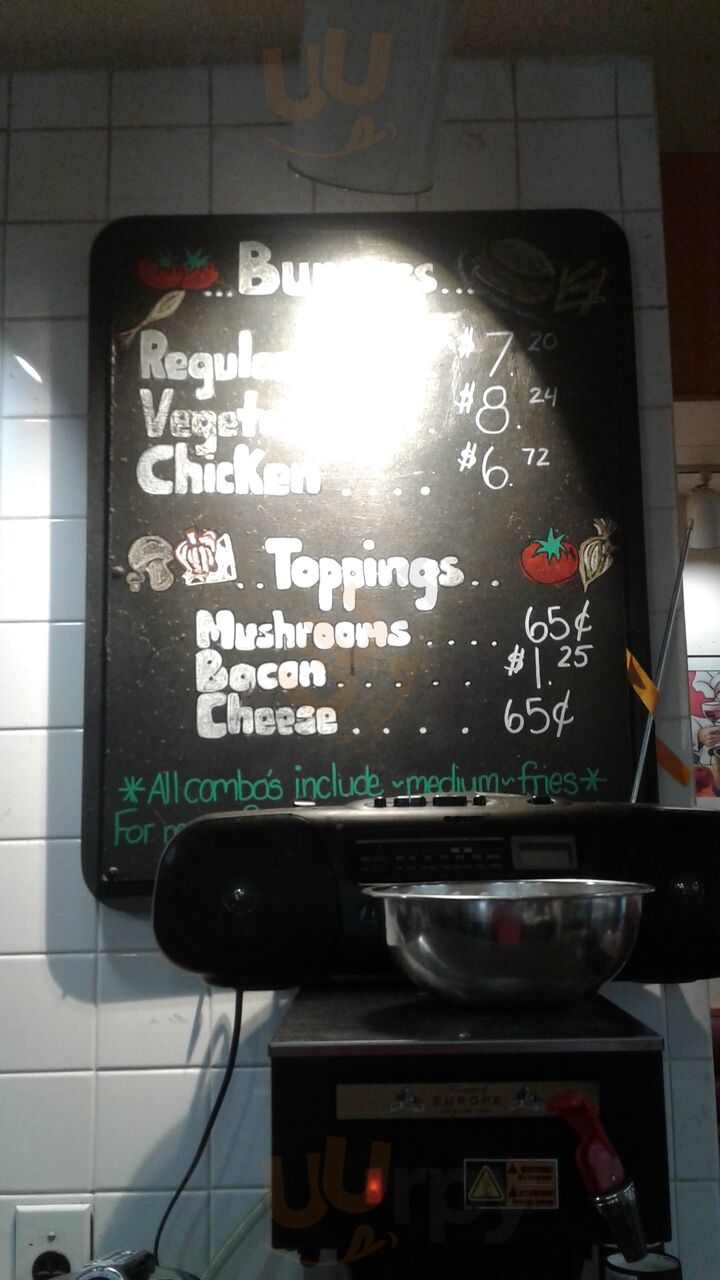 ...Burgers...
Regular $7.20
$8.24
Chicken .... $6.72
..Toppings..
Mushrooms .... 65¢
Bacon ..... $1.25
Cheese ..... 65¢
*All combo's include ~medium~ fries*
For
EUROPE
uurpy